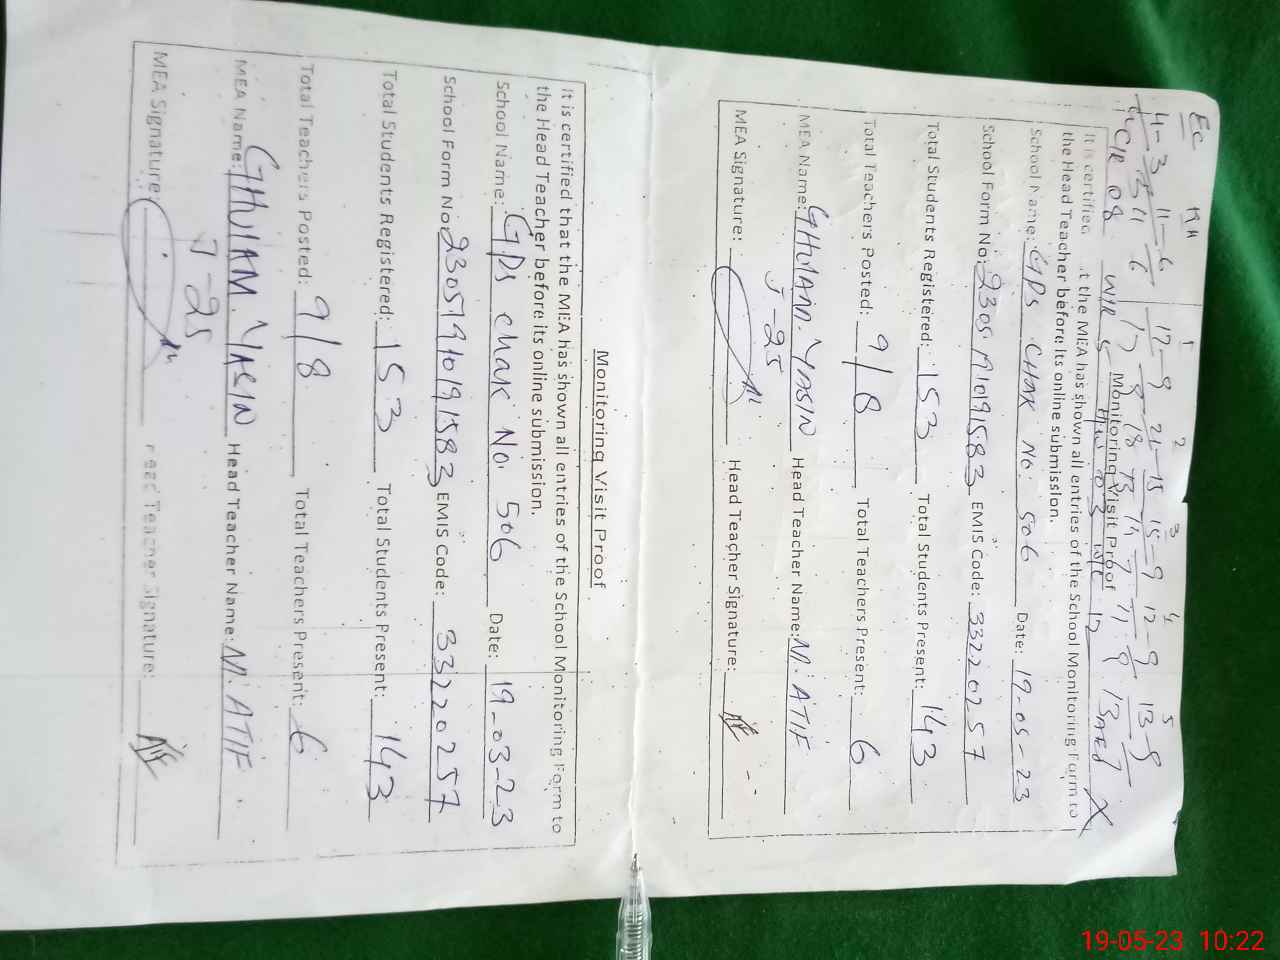 Ec KH 1 2 3 4 5
4-3 11-6 17-9 21-15 15-9 12-9 13-9
CR 08 W/R 5
Monitoring Visit Proof
It is certified t the MEA has shown all entries of the School Monitoring Form to
the Head Teacher before its online submission.
School Name: GPS CHAK No. 506 Date: 19-05-23
School Form No: 23051910191583 EMIS Code: 33220257
Total Students Registered: 153 Total Students Present: 143
Total Teachers Posted: 9/8 Total Teachers Present: 6
MEA Name: GHULAM YASIN Head Teacher Name: M. ATIF
J-25
MEA Signature: Head Teacher Signature:
Monitoring Visit Proof
It is certified that the MEA has shown all entries of the School Monitoring Form to
the Head Teacher before its online submission.
School Name: GPS CHAK No. 506 Date: 19-03-23
School Form No: 23051910191583 EMIS Code: 33220257
Total Students Registered: 153 Total Students Present: 143
Total Teachers Posted: 9/8 Total Teachers Present: 6
MEA Name: GHULAM YASIN Head Teacher Name: M. ATIF
J-25
MEA Signature: Head Teacher Signature:
19-05-23 10:22